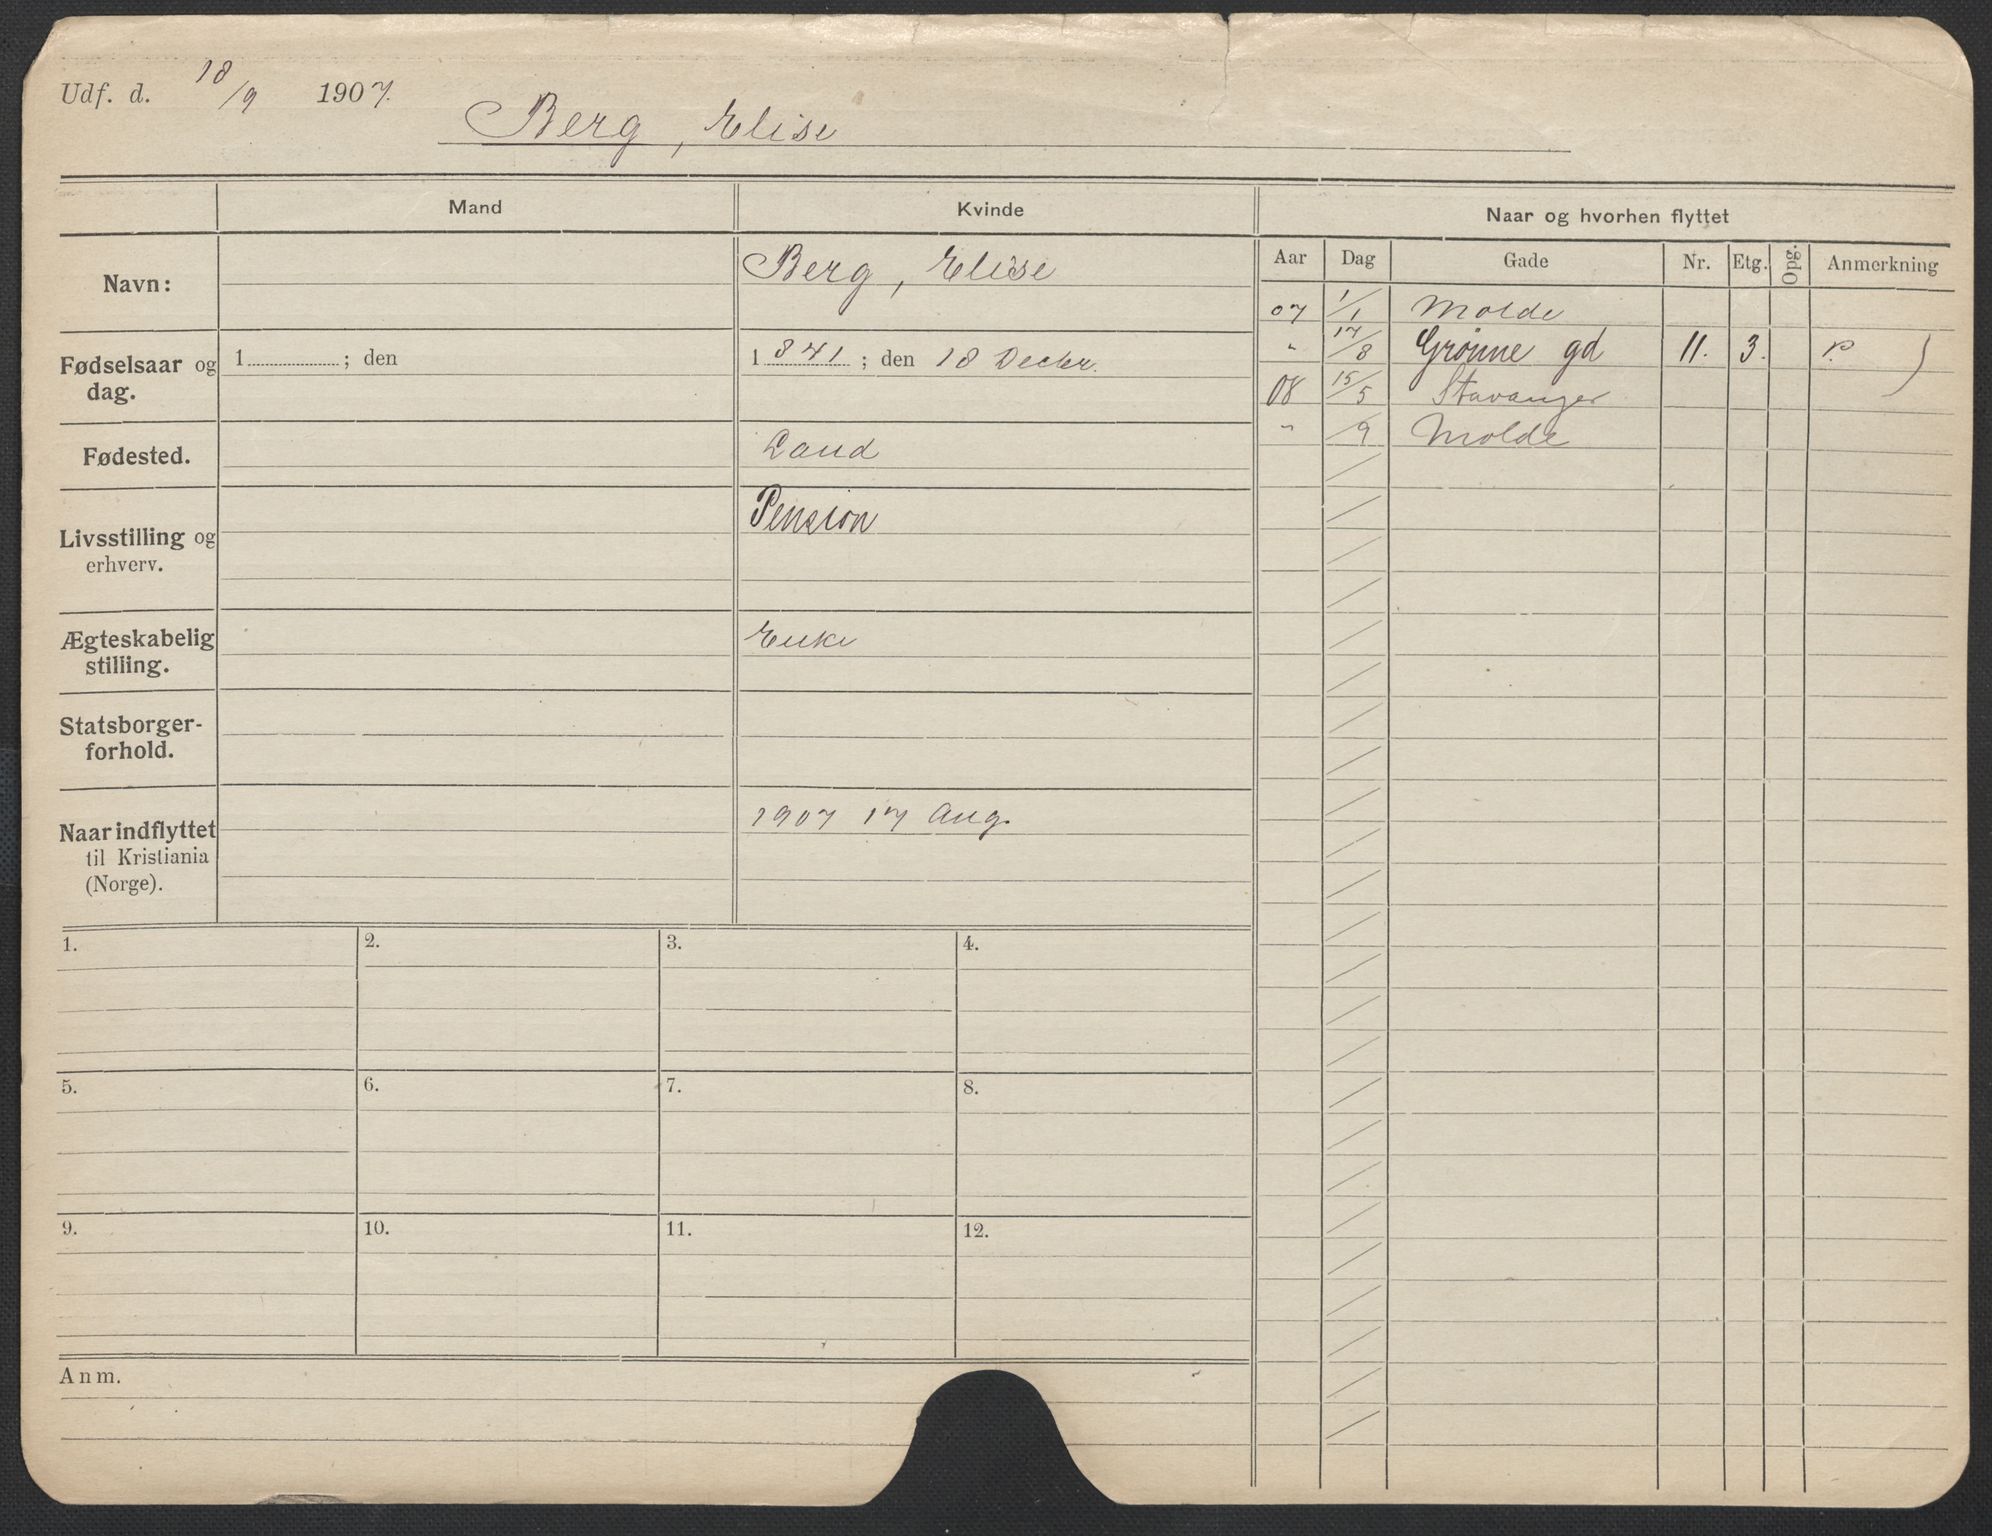 Udf. d. 18/9 1907.
Berg, Elise
Mand
Kvinde
Naar og hvorhen flyttet
Aar Dag Gade Nr. Etg. Opg. Anmerkning
Navn:
Berg, Elise
Fødselsaar og
dag.
1 ; den
1841 ; den 18 Decbr.
Fødested.
Land
Livsstilling og
erhverv.
Pension
Ægteskabelig
stilling.
Enke
Statsborger-
forhold.
Naar indflyttet
til Kristiania
(Norge).
1907 17 Aug.
07 1/1 Molde
" 17/8 Grønne gd 11. 3. p. )
08 15/5 Stavanger
" /9 Molde
1. 2. 3. 4.
5. 6. 7. 8.
9. 10. 11. 12.
Anm.